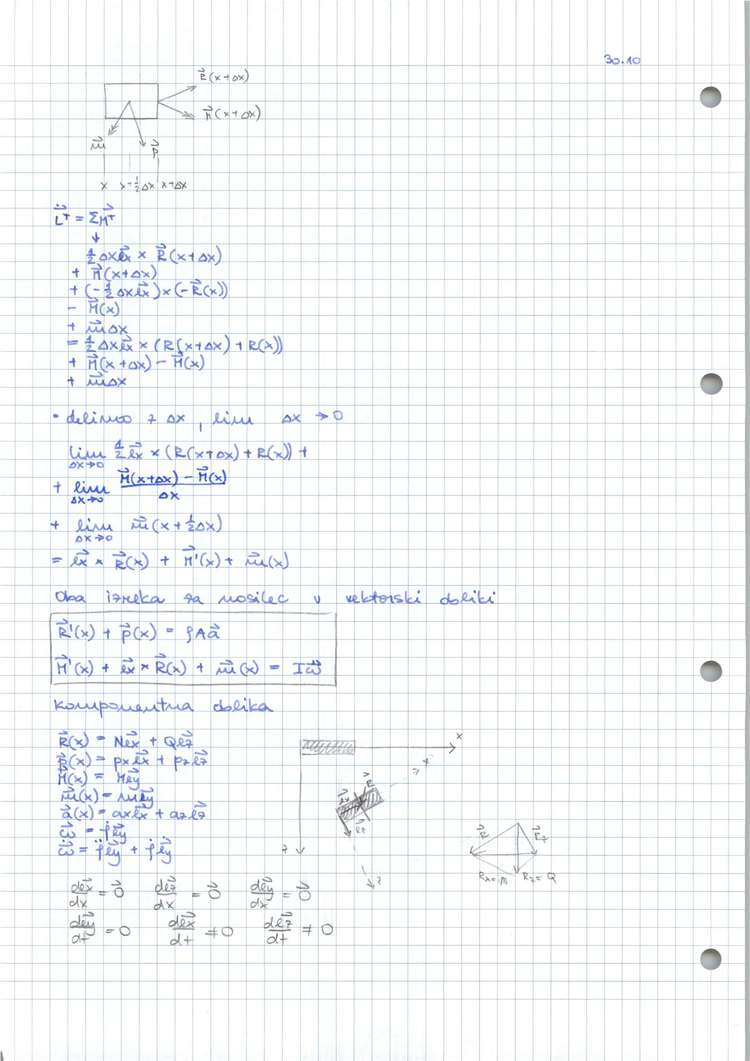 30.10
R⃗(x+Δx)
M⃗(x+Δx)
m⃗
p⃗
x x+½Δx x+Δx
L̇⃗ᵀ = ΣM⃗ᵀ
↓
½Δx e⃗x × R⃗(x+Δx)
+ M⃗(x+Δx)
+ (-½Δx e⃗x) × (-R⃗(x))
- M⃗(x)
+ m⃗Δx
= ½Δx e⃗x × (R(x+Δx) + R(x))
+ M⃗(x+Δx) - M⃗(x)
+ m⃗Δx
• delimo z Δx, lim Δx → 0
lim Δx→0 ½ e⃗x × (R(x+Δx) + R(x)) +
+ lim Δx→0 (M⃗(x+Δx) - M⃗(x)) / Δx
+ lim Δx→0 m⃗(x+½Δx)
= e⃗x × R⃗(x) + M⃗'(x) + m⃗(x)
Oba izreka za nosilec v vektorski obliki
R⃗'(x) + p⃗(x) = ρAa⃗
M⃗'(x) + e⃗x × R⃗(x) + m⃗(x) = Iω̇⃗
komponentna oblika
R⃗(x) = Ne⃗x + Qe⃗z
p⃗(x) = px e⃗x + pz e⃗z
M⃗(x) = Me⃗y
m⃗(x) = me⃗y
a⃗(x) = ax e⃗x + az e⃗z
ω⃗ = φ̇e⃗y
ω̇⃗ = φ̈e⃗y + φ̇ė⃗y
x
x
z
z
R⃗
R⃗z
Rx=N Rz=Q
de⃗x/dx = 0⃗ de⃗z/dx = 0⃗ de⃗y/dx = 0⃗
de⃗y/dt = 0 de⃗x/dt ≠ 0 de⃗z/dt ≠ 0